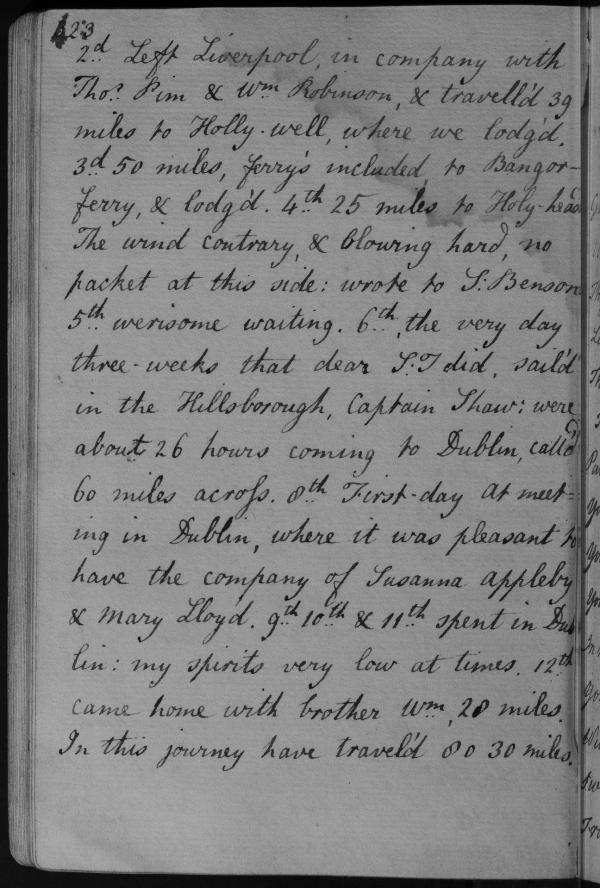 123
2d Left Liverpool, in company with
Thos. Pim & Wm Robinson, & travell'd 39
miles to Holly-well, where we lodg'd.
3d 50 miles, ferry's included, to Bangor-
ferry, & lodg'd. 4th 25 miles to Holy-head
The wind contrary, & blowing hard, no
packet at this side: wrote to S: Benson
5th werisome waiting. 6th, the very day
three-weeks that dear S:T did, sail'd
in the Hillsborough, Captain Shaw: were
about 26 hours coming to Dublin, call'd
60 miles across. 8th First-day at meet=
ing in Dublin, where it was pleasant to
have the company of Susanna Appleby
& Mary Lloyd. 9th 10th & 11th spent in Dub
lin: my spirits very low at times. 12th
came home with brother Wm, 28 miles.
In this journey have travel'd 8030 miles.